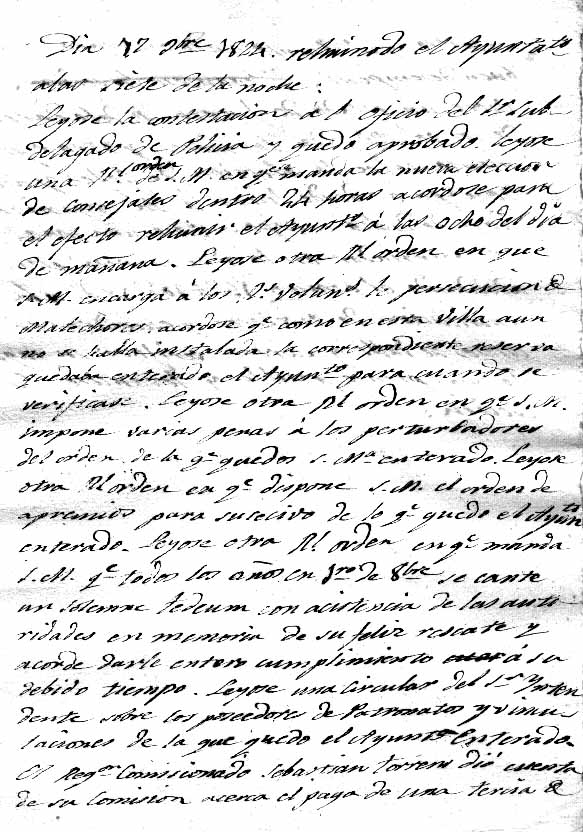 Dia 17 9bre 1824. rehuinodo el Ayuntato
alas siete de la noche:
Leyose la contestacion á el oficio del Sr Sub
delagado de Policia y quedo aprobado. Leyose
una Rl orden de S.M. en qe manda la nueva eleccion
de Consejales dentro 24 horas acordose para
el efecto rehunir el Ayunto á las ocho del dia
de mañana. Leyose otra Rl orden en que
S.M. encarga á los Rs Volans la persecucion de
Malechores, acordose qe como en esta Villa aun
no se halla instalada la correspondiente reserva
quedaba enterado el Ayunto para cuando se
verificase. Leyose otra Rl orden en qe S.M.
impone varias penas á los perturbadores
del orden de la qe quedos S. Ma enterado. Leyose
otra Rl orden en qe dispone S.M. el orden de
apremios para sucecivo de lo qe quedo el Ayunto
enterado. Leyose otra Rl orden en qe manda
S.M. qe todos los años en 1ro de 8bre se cante
un solemne tedeum con acistencia de las auto
ridades en memoria de su feliz rescate y
acorde darle entero cumplimiento á su
debido tiempo. Leyose una Circular del Sr Ynten
dente sobre los poseedores de Patronatos y vincu
laciones de la que quedo el Ayunto Enterado.
El Regor Comisionado Sebastian Torrens dió cuenta
de su Comision acerca el pago de una tercia de